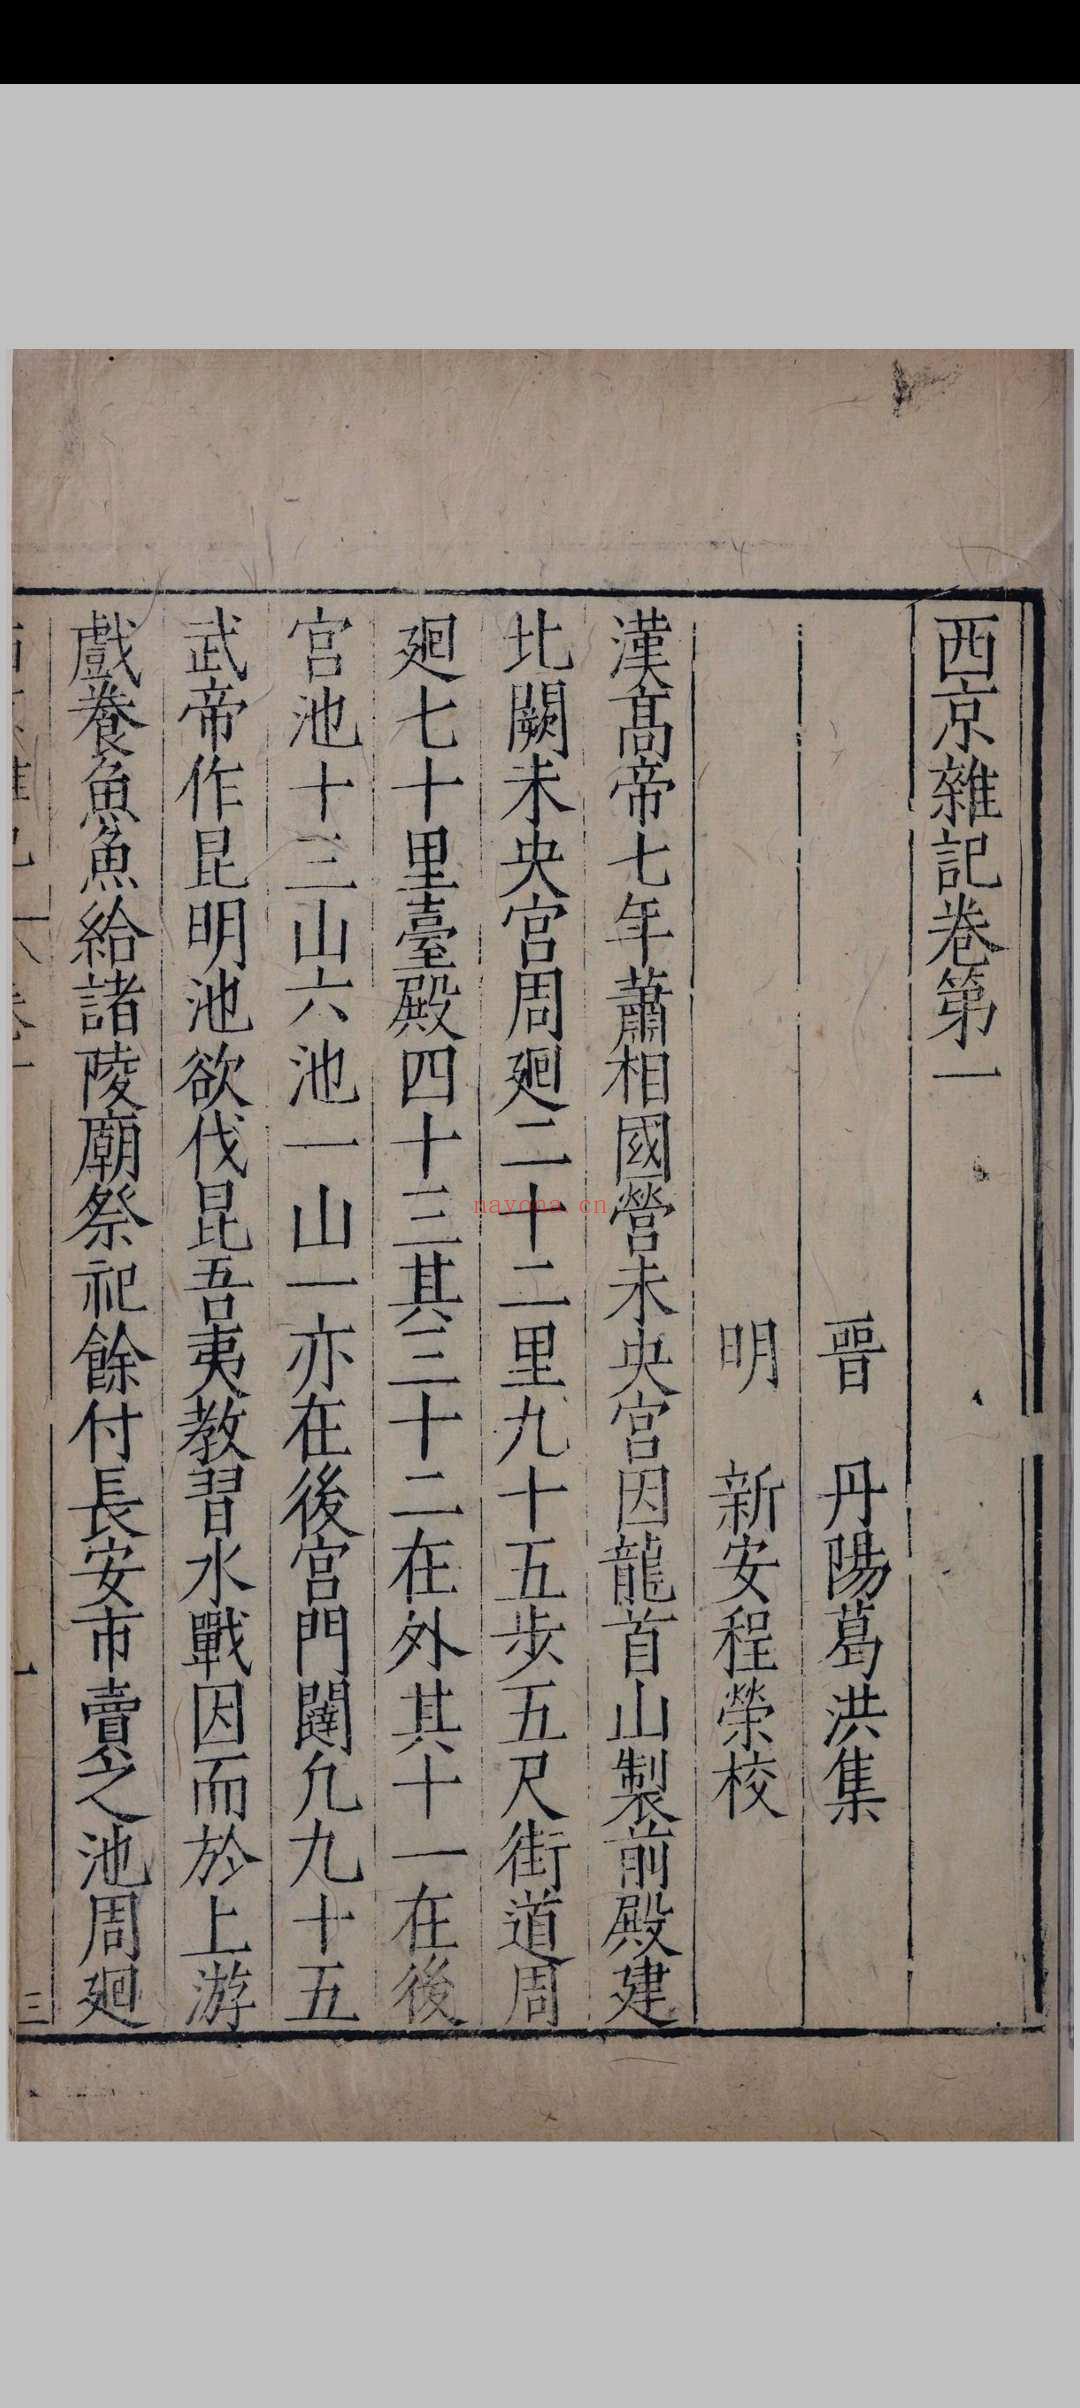 西京雜記卷第一
晉　丹陽葛洪集
明　新安程榮校
漢高帝七年蕭相國營未央宮因龍首山製前殿建
北闕未央宮周廻二十二里九十五步五尺街道周
廻七十里臺殿四十三其三十二在外其十一在後
宮池十三山六池一山一亦在後宮門闥凢九十五
武帝作昆明池欲伐昆吾夷教習水戰因而於上游
戲養魚魚給諸陵廟祭祀餘付長安市賣之池周廻
三
nayona.cn